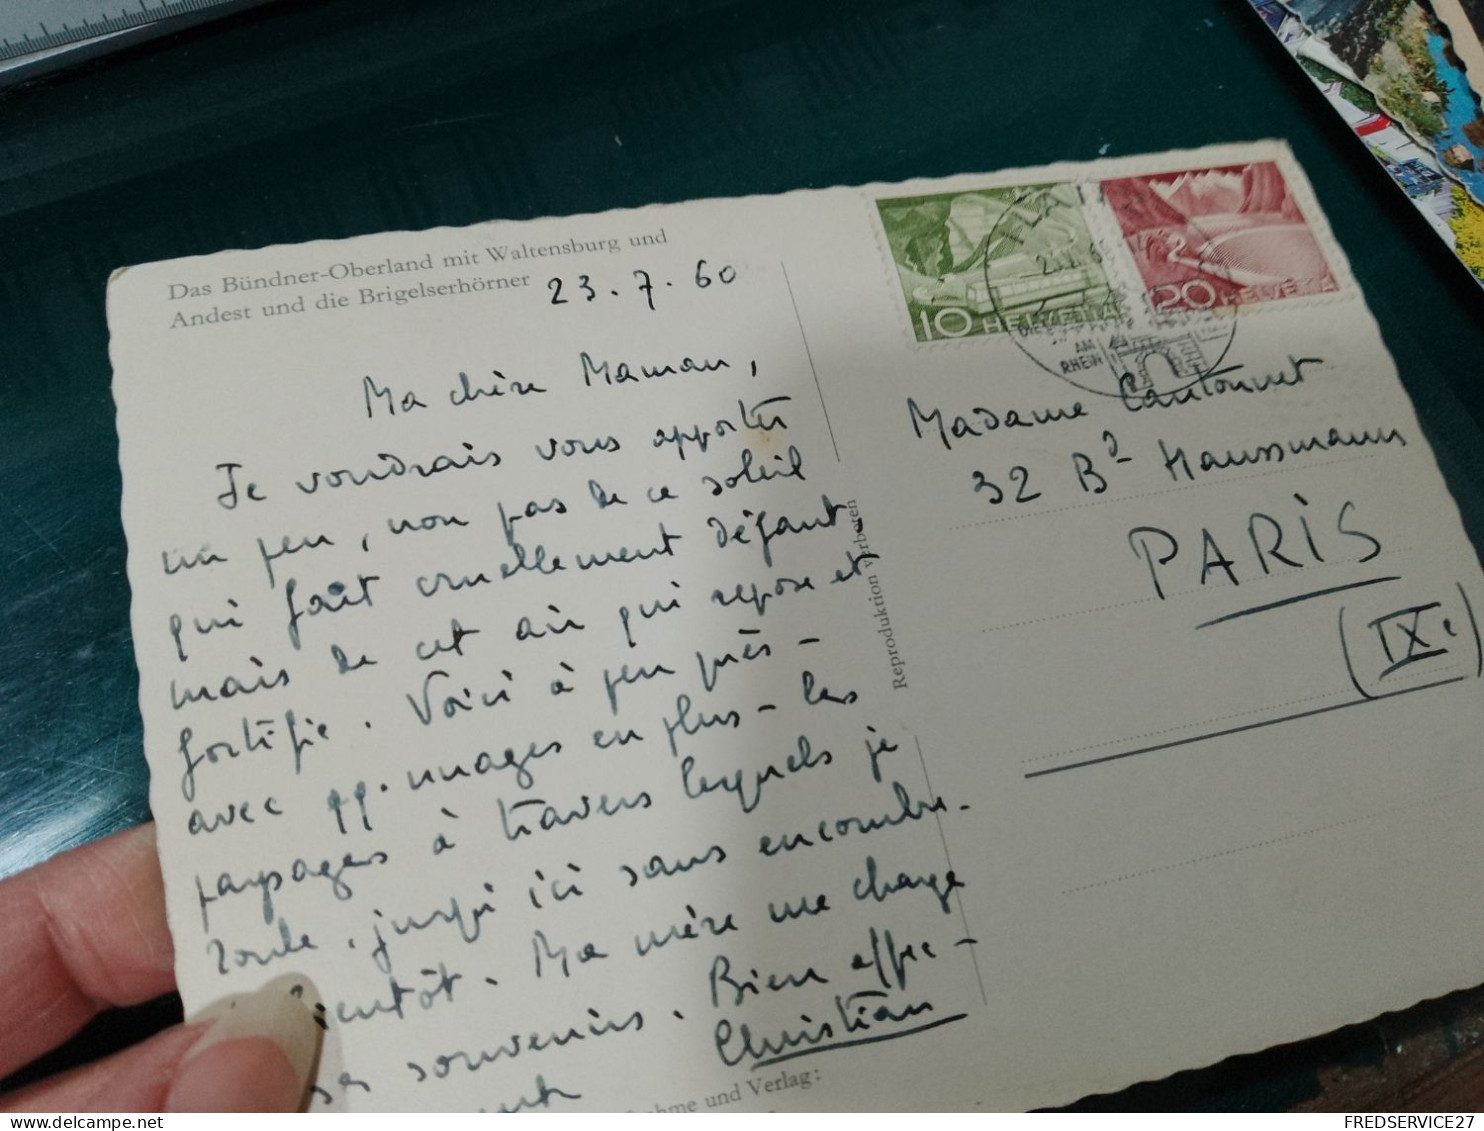 Das Bündner-Oberland mit Waltensburg und
Andest und die Brigelserhörner
23.7.60
Ma chère Maman,
Je voudrais vous apporter
un peu, non pas de ce soleil
qui fait cruellement défaut,
mais de cet air qui repose et
fortifie. Voici à peu près -
avec qq. nuages en plus - les
paysages à travers lesquels je
roule, jusqu'ici sans encombre.
bientôt. Ma mère me charge
ses souvenirs. Bien affec-
Christian
hme und Verlag:
Reproduktion verboten
10 HELVETIA
20 HELVETIA
AM
RHEIN
Madame Cantonnet
32 Bd Haussmann
PARIS
(IXe)
FREDSERVICE27